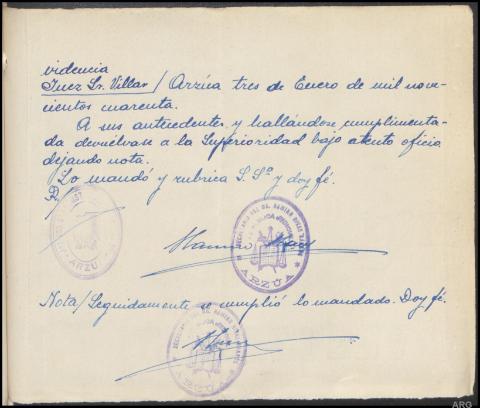 videncia
Juez Sr. Villar / Arzúa tres de Enero de mil nove-
cientos cuarenta.
A sus antecedentes y hallándose cumplimenta-
da devuélvase a la Superioridad bajo atento oficio
dejando nota.
Lo mandó y rubrica S.Sª y doy fé.
ARZÚA
ARZÚA
Nota/ Seguidamente se cumplió lo mandado. Doy fé.
ARZÚA
ARG